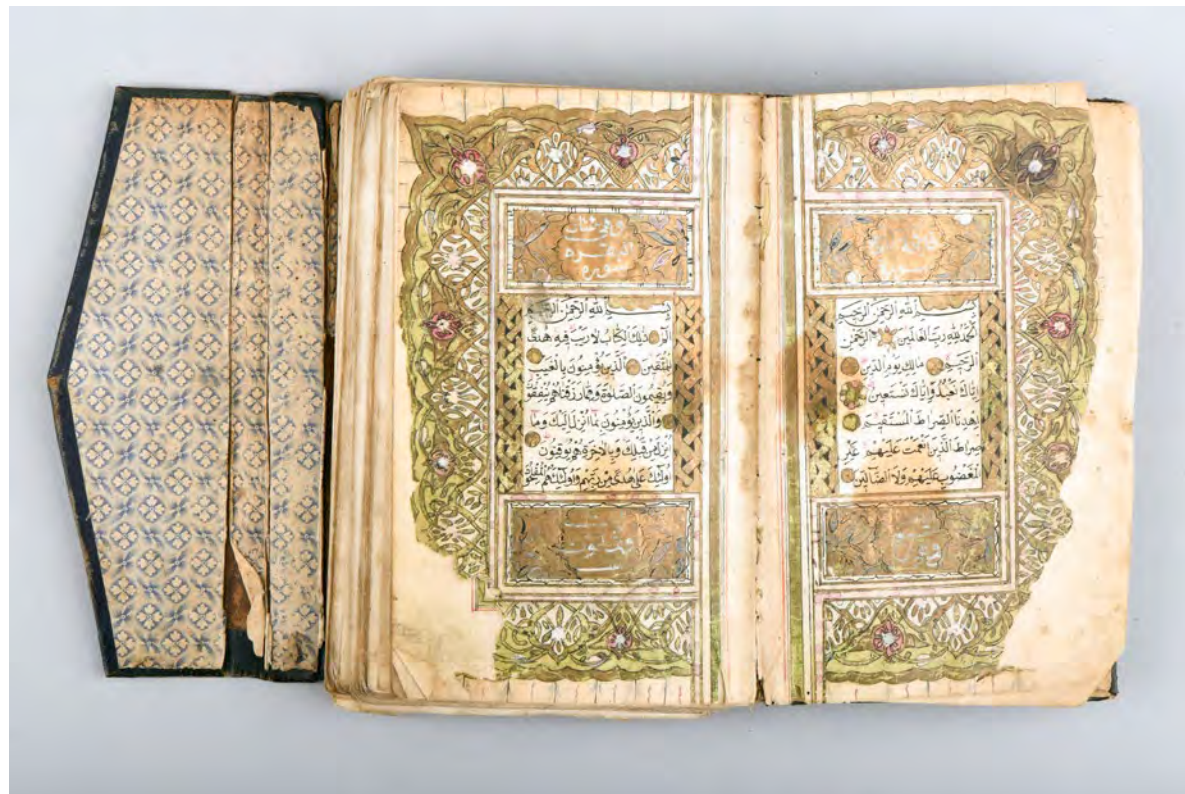 فاتحة
سورة
بسم الله الرحمن الرحيم
الحمد لله رب العالمين الرحمن
الرحيم مالك يوم الدين
اياك نعبد واياك نستعين
اهدنا الصراط المستقيم
صراط الذين انعمت عليهم غير
المغضوب عليهم ولا الضالين
وهي
البقرة
سورة
بسم الله الرحمن الرحيم
الم ذلك الكتاب لا ريب فيه هدى
للمتقين الذين يؤمنون بالغيب
ويقيمون الصلوة ومما رزقناهم ينفقو
والذين يؤمنون بما انزل اليك وما
انزل من قبلك وبالاخرة هم يوقنون
اولئك على هدى من ربهم واولئك هم المفلحو